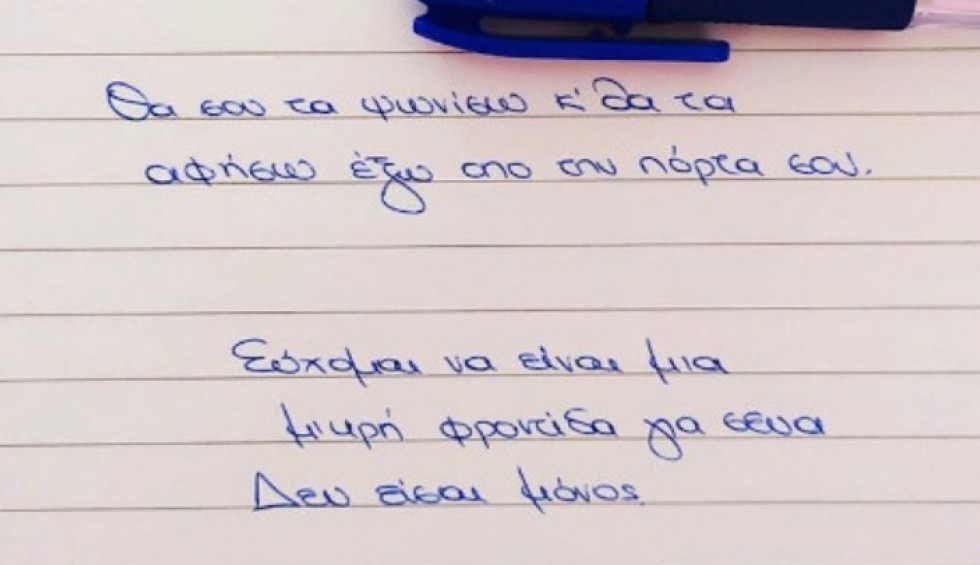 Θα σου τα ψωνίσω κ' θα τα
αφήσω έξω απο την πόρτα σου.
Εύχομαι να είναι μια
μικρή φροντίδα για σενα
Δεν είσαι μόνος